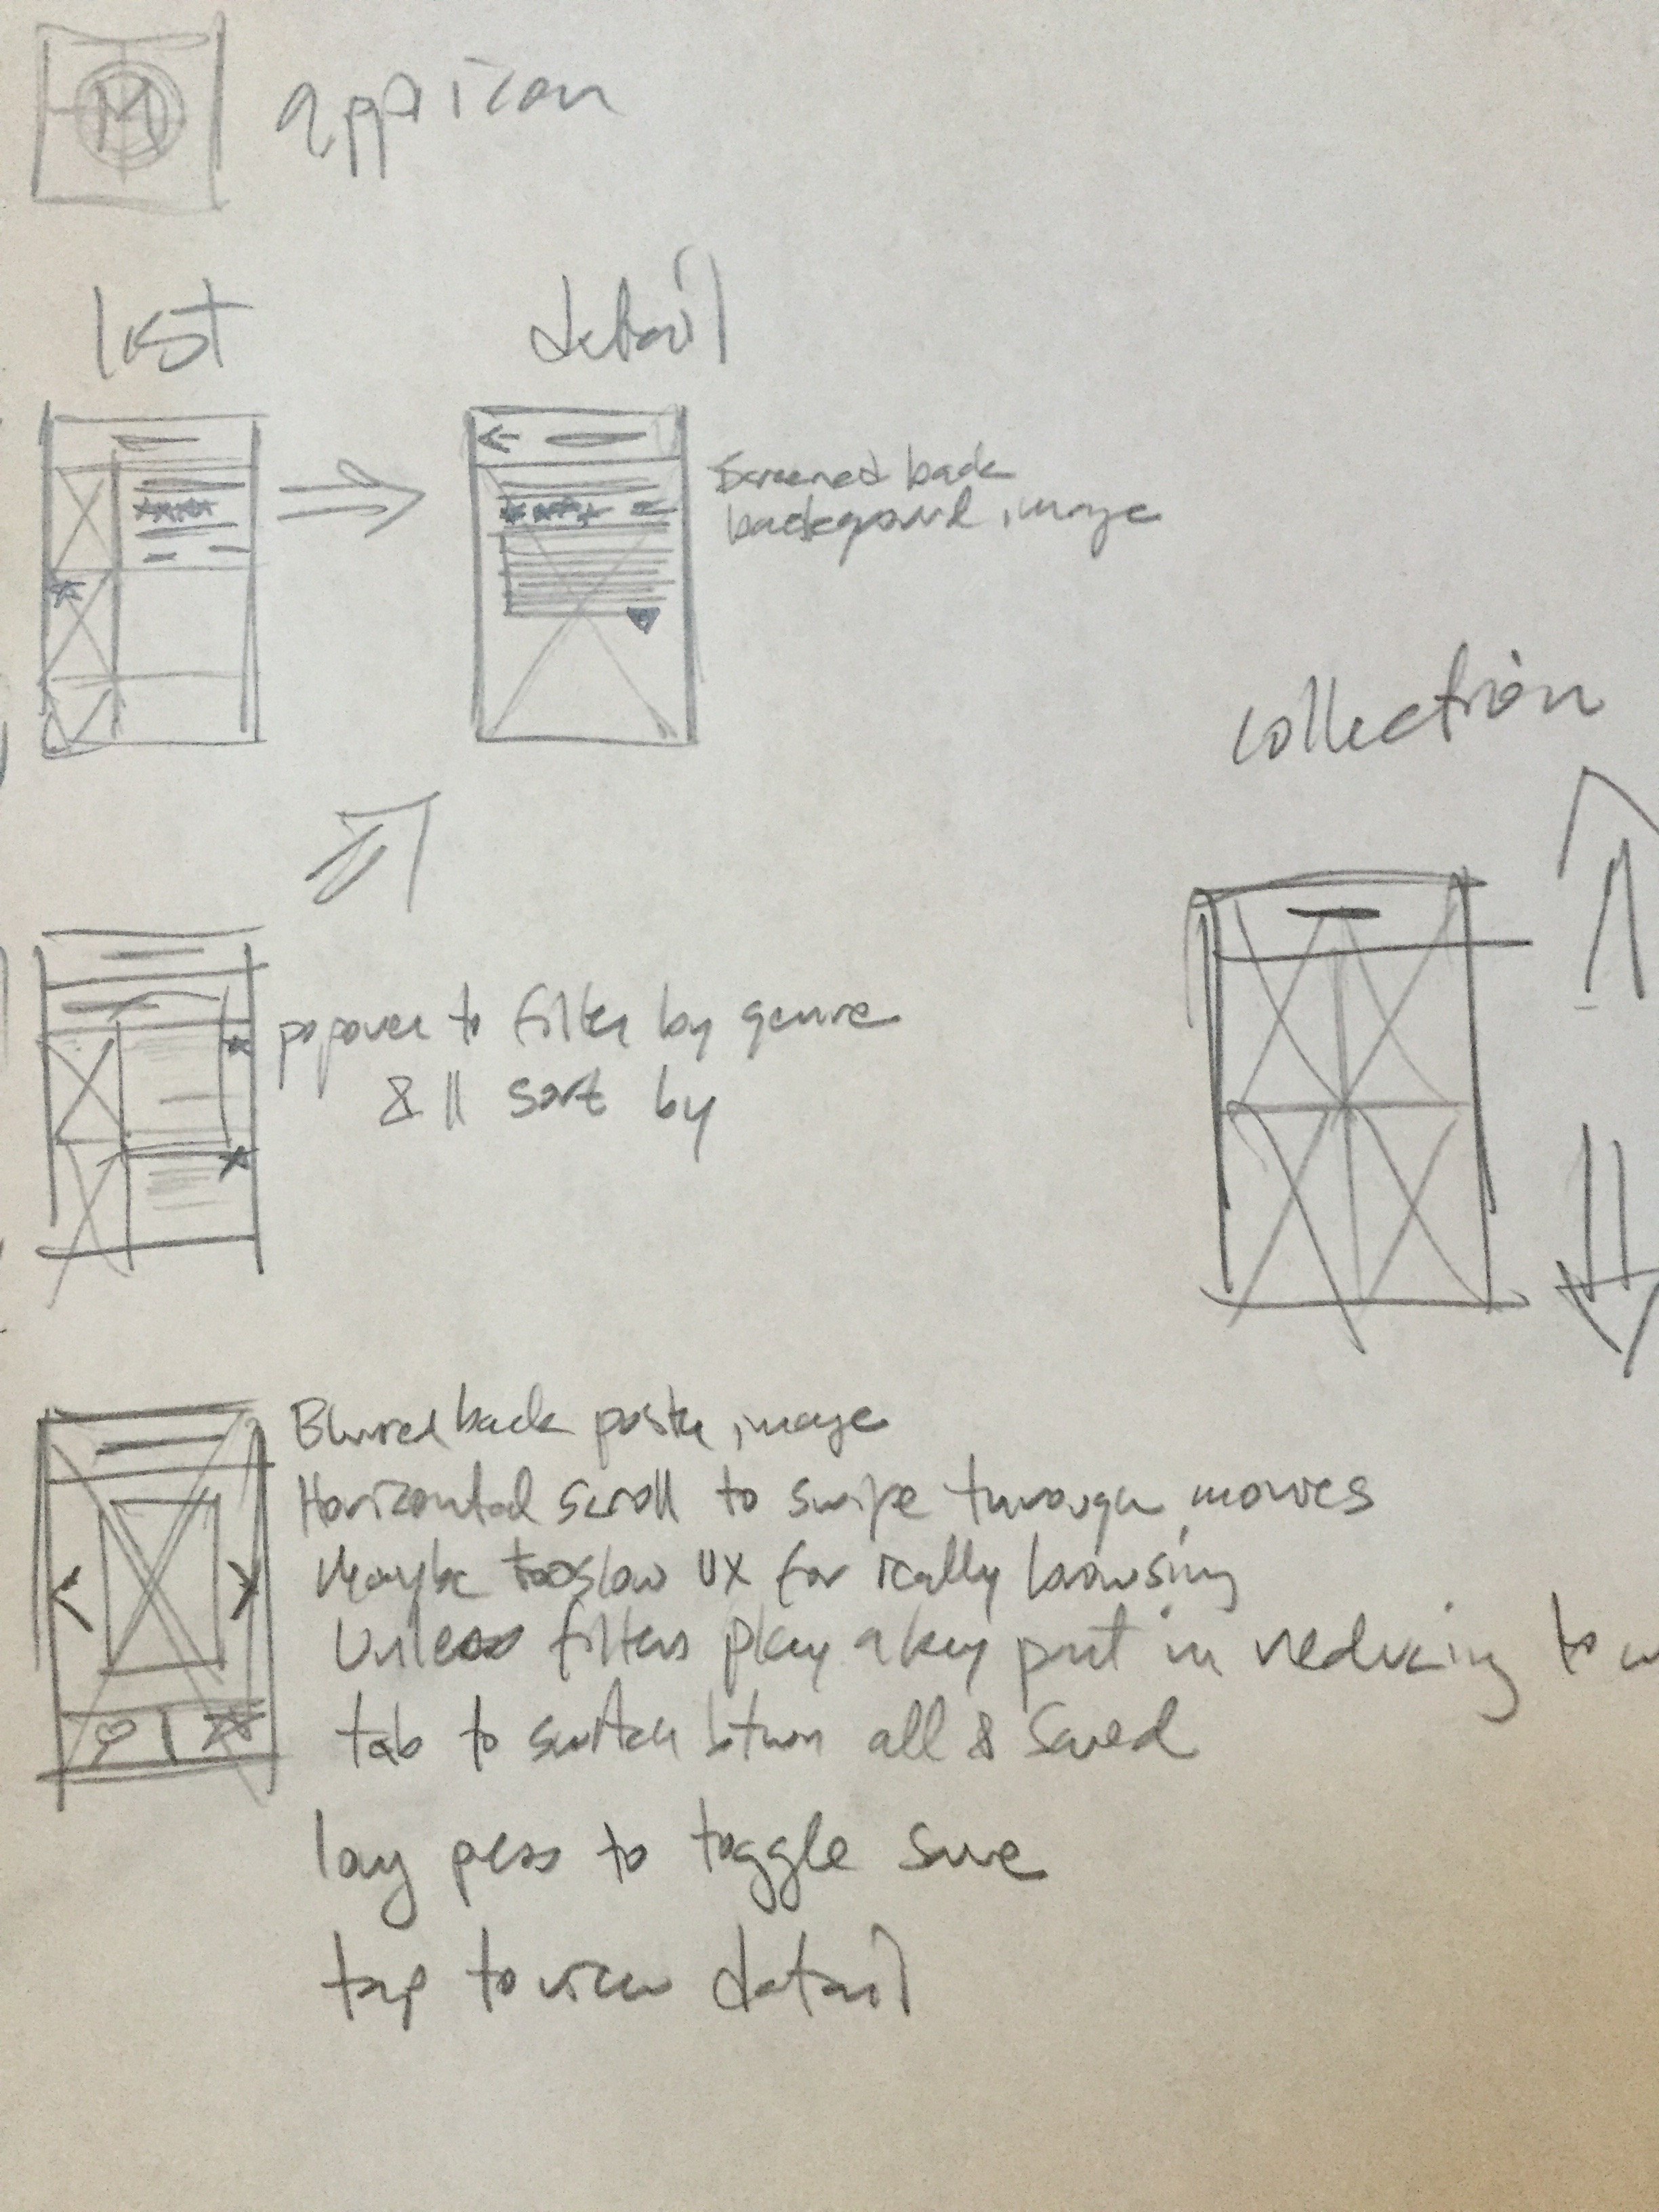 M
app icon
list
detail
Screened back
background image
collection
popover to filter by genre
& || sort by
Blurred back poster image
Horizontal scroll to swipe through movies
Maybe too slow UX for really browsing
Unless filters play a key part in reducing to
tab to switch btwn all & Saved
long press to toggle save
tap to view detail